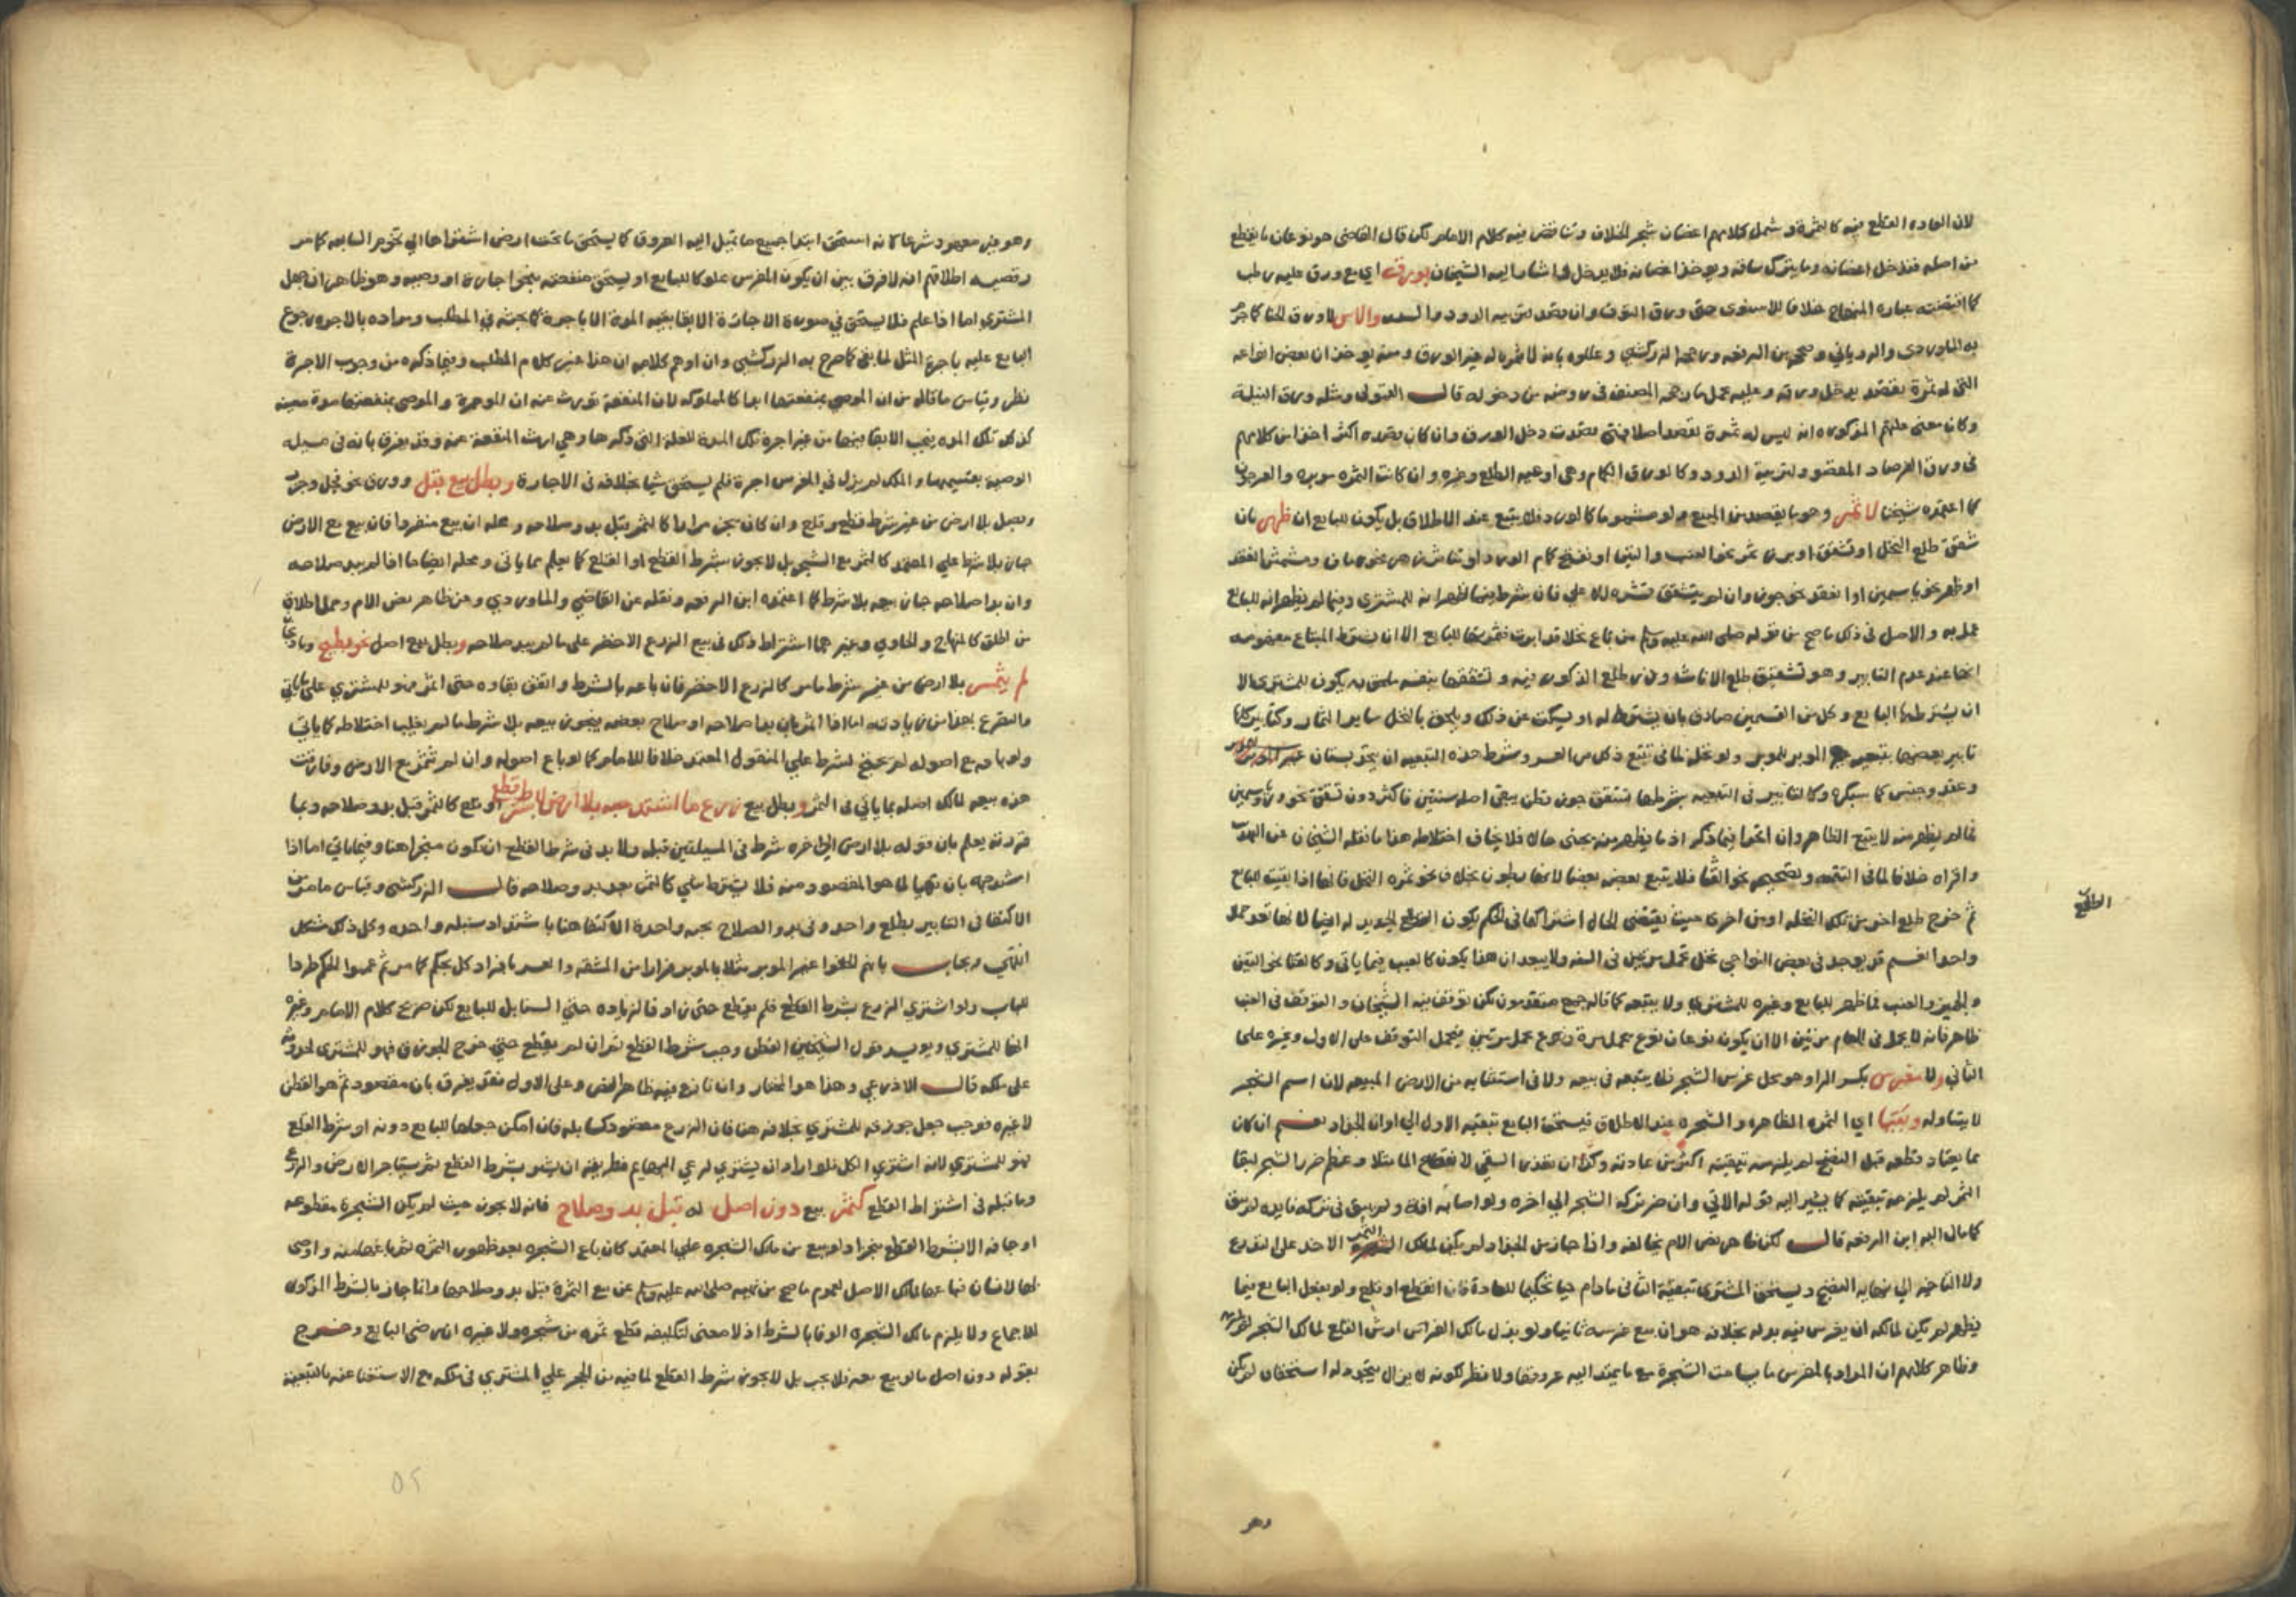 لان العاده القطع فيه كالثمرة وشمل كلامهم اغصان شجر الخلاف وتناقض فيه كلام الامام لكن قال القاضي هو نوعان ما يقطع
من اصله فتدخل اغصانه وما يترك ساقه ويوخذ اغصانه فلا يدخل اشار اليه الشيخان بورقه اي مع ورق عليه رطب
كما اقتضته عباره المنهاج خلافا للاسنوى حتى ورق التوت وان قصد لتربيه الدود والسدر والاس لا ورق الحنا كما جزم
به الماوردى والروياني وصححه ابن الرفعه ورجحه الزركشي وعللوه بانه لا ثمر له غير الورق ومنه يوخذ ان بعض انواعه
التي له ثمرة تقصد يدخل ورقه وعليه يحمل ما رجحه المصنف في روضه من دخوله قال المتولي ومثله ورق النيلة
وكان معنى علتهم المذكوره انه ليس له ثمرة تقصد اصلا فمتى قصدت دخل الورق وان كان قصده اكثر اخذا من كلامهم
في ورق الفرصاد المقصود لتربية الدود وكالورق الكمام وهى اوعيه الطلع وغيره وان كانت الثمره موبره والعرجون
كما اعتمده شيخنا لا ثمر وهو ما يقصد من المبيع ولو مشموما كالورد فلا يتبع عند الاطلاق بل يكون للبايع ان ظهر بان
تشقق طلع النخل او تشقق او برز ثمر نحو العنب والتين او تفتح كمام الورد او تناثر زهر نحو رمان ومشمش انعقد
او ظهر نحو ياسمين او انعقد نحو جوز وان لم يتشقق قشره الاعلي فان شرط فيما ظهر انه للمشترى وفيما لم يظهر انه للبايع
عمل به والاصل في ذلك ما صح من قوله صلى الله عليه وسلم من باع نخلا قد ابرت فثمرتها للبايع الا ان يشترط المبتاع مفهومه
انها عند عدم التابير وهو تشقيق طلع الاناث وذر طلع الذكور فيه وتشققها بنفسه ملحق به يكون للمشترى الا
ان يشترطها البايع وكل من القسمين صادق بان يشترط له او يسكت عن ذلك ويلحق بالنخل ساير الثمار وكتابير كلها
تابير بعضها بتبعيه غير الموبر للموبر ولو نخل لما في تتبع ذلك من العسر وشرط هذه التبعيه ان يتحد بستان
وعقد وجنس كما سيذكره وكالتابير فى التبعيه بشرطها تشقق جوز قطن يبقى اصله سنتين فاكثر دون تشقق نحو ورد وياسمين
فما لم يظهر منه لا يتبع الظاهر وان اتحدا فيما ذكر اذ ما يظهر منه يجنى حالا فلا يخاف اختلاطه هذا ما نقله الشيخان عن التهذيب
واقراه خلافا لما في التتمه وتصحيحه نحو القثا فلا يتبع بعضه بعضا لانها بطون بخلاف نحو ثمره النخل فانها اذا بقيت للبايع
ثم خرج طلع اخر من تلك النخله او من اخرى حيث يقتضى الحال اشتراكها في الحكم يكون الطلع الجديد له ايضا لانها تعد حملا
واحدا نعم قد يوجد فى بعض النواحي نخل تحمل مرتين في السنه ولا يبعد ان هذا يكون كالعيب فيما ياتى وكالقثا نحو التين
والجميز والعنب فما ظهر للبايع وغيره للمشترى ولا يتبعه كما قاله جمع متقدمون لكن توقف فيه الشيخان والتوقف في العنب
ظاهر فانه لا يحمل في العام مرتين الا ان يكون نوعان نوع يحمل مرة ونوع يحمل مرتين فيحمل التوقف على الاول وغيره على
الثاني ولا مغرس بكسر الراء وهو محل غرس الشجر فلا يتبعه في بيعه ولا فى استثنايه من الارض المبيعه لان اسم الشجر
لا يتناوله وبقيا اي الثمره الظاهره والشجره عند الاطلاق فيستحق البايع تبقيه الاول الي اوان الجذاذ نعم ان كان
مما يعتاد قطعه قبل النضج لم يلزمه تبقيته اكثر من عادته وكذا ان تعذر السقي لانقطاع الما مثلا وعظم ضرر الشجر ببقا
الثمر لم يلزمه تبقيته كما يشير اليه قوله الاتي وان ضر تركه الشجر الي اخره ولو اصابه افة ولم يبق في تركه فايده لم يبق
كما مال اليه ابن الرفعه قال لكن ظاهر نص الام يخالفه واذا جاز من الجذاذ لم يكن لمالك الثمر الاخذ على التدريج
ولا التاخير الي نهايه النضج ويستحق المشترى تبقية الثانى ما دام حيا تحكيما للعادة فان انقطع او قلع ولو بفعل البايع فيما
يظهر لم يكن لمالكه ان يغرس فيه بدله بخلافه هو ان بيع غرسه ثانيا ولو بذل مالك الغراس ارش القلع لمالك الشجر
وظاهر كلامهم ان المراد بالمغرس ما يسامت الشجرة مع ما يمتد اليه عروقها ولا نظر لكونه لا يزال يتجدد له استحقاق لم يكن
الطالع
وهو
وهو غير معهود شرعا كانه استحق ابتدا جميع ما تمتد اليه العروق كما يستحق ما تحت ارض اشتراها الي تخوم السابعه كما مر
وقضيه اطلاقهم انه لا فرق بين ان يكون المغرس مملوكا للبايع او يستحق منفعته بنحو اجارة او وصيه وهو ظاهر ان جهل
المشتري اما اذا علم فلا يستحق في صورة الاجارة الابقا بقيه المدة الا باجرة كما بحثه في المطلب ومراده بالاجره رجوع
البايع عليه باجرة المثل لما بقى كما صرح به الزركشي وان اوهم كلامه ان هذا غير كلام المطلب وفيما ذكره من وجوب الاجرة
نظر وقياس ما قاله من ان الموصى بمنفعتها ابدا كالمملوكه لان المنفعة تورث عنه ان الموجرة والموصى بمنفعتها مدة معينه
كذلك تلك المده فيجب الابقا فيها من غير اجرة تلك المدة للعلة التي ذكرها وهي ارث المنفعة عنه وقد يفرق بانه في مسيله
الوصيه بقسيميها والملك لم يزل في المغرس اجرة فلم يستحق شيا بخلافه في الاجارة وبطل بيع بقل وورق نحو فجل وجزر
وبصل بلا ارض من غير شرط قطع وقلع وان كان يجز مرارا كالثمر قبل بدو صلاحه ومحله ان بيع منفردا فان بيع مع الارض
جاز بلا شرط علي المعتمد كالثمر مع الشجر بل لا يجوز بشرط القطع او القلع كما يعلم مما ياتى ومحله ايضا ما اذا لم يبد صلاحه
وان بدا صلاحه جاز بيعه بلا شرط كما اعتمده ابن الرفعه ونقله عن القاضي والماوردي وعن ظاهر نص الام وحمل اطلاق
من اطلق كالمنهاج والحاوي وغيرهما اشتراط ذلك في بيع الزرع الاخضر على ما لم يبد صلاحه وبطل بيع اصل نحو بطيخ
لم يثمر بلا ارض من غير شرط ما مر كالزرع الاخضر فان باعه بالشرط واتفق بقاوه حتى اثمر فهو للمشتري على ما ياتي
ما لتفرع بعدا من زيادته اما اذا اثمر بان بدا صلاحه او صلاح بعضه فيجوز بيعه بلا شرط ما لم يغلب اختلاطه كما ياتي
ولو باعه مع اصوله لم يحتج لشرط علي المنقول المعتمد خلافا للامام كما لو باع اصوله وان لم تثمر مع الارض وفارقت
هذه بيعه لمالك اصله بما ياتي في الثمر وبطل بيع زرع ما اشتد حبه بلا ارض لا بشرط قطع او قلع كالثمر قبل بدو صلاحه وبما
قررته يعلم بان قوله بلا ارض الي اخره شرط فى المسيلتين قبله ولا بد فى شرط القطع ان يكون منجزا هنا وفيما ياتي اما اذا
اشتد حبه بان تهيا لما هو المقصود منه فلا يشترط شي كالثمر بعد بدو صلاحه قال الزركشي وقياس ما مر من
الاكتفا في التابير بطلع واحد وفي بدو الصلاح بحبه واحدة الاكتفا هنا باشتداد سنبله واحده وكل ذلك مشكل
انتهي ويجاب بانهم الحقوا غير الموبر مثلا بالموبر فرارا من المشقه والعسر بافراد كل بحكم كما مر ثم عمموا الحكم طردا
للباب ولو اشتري الزرع بشرط القطع فلم يقطع حتى زاد فالزياده حتي السنابل للبايع لكن صريح كلام الامام وغيره
انها للمشتري ويويده قول الشيخين القطن وجب شرط القطع ثم ان لم يقطع حتي خرج الجوزق فهو للمشترى لحدوثه
على ملكه قال الاذرعي وهذا هو المختار وان نازع فيه ظاهر النص وعلى الاول فقد يفرق بان مقصوده ثم هو القطن
لا غيره فوجب جعل جوزقه للمشتري بخلافه هنا فان الزرع مقصود كسنابله فان امكن جعلها للبايع دونه او شرط القلع
فهو للمشتري لانه اشتري الكل فلو اراد ان يشتري لرعي البهايم فطريقه ان يشتريه بشرط القطع ثم يستاجر الارض والزرع
وما قبله في اشتراط القطع كثمر بيع دون اصل له قبل بدو صلاح فانه لا يجوز حيث لم يكن الشجرة مقطوعه
او جافه الا بشرط القطع منجزا ولو بيع من مالك الشجره علي المعتمد كان باع الشجره بعد ظهور الثمره ثم باعها منه واوصى
بها لانسان فباعها لمالك الاصل لعموم ما صح من نهيه صلى الله عليه وسلم عن بيع الثمرة قبل بدو صلاحها وانما جاز بالشرط المذكور
للاجماع ولا يلزم مالك الشجره الوفا بالشرط اذ لا معنى لتكليفه قطع ثمره من شجره ولا غيره ان رضى البايع وخرج
بقوله دون اصل ما لو بيع معه فلا يجب بل لا يجوز شرط القطع لما فيه من الحجر علي المشتري في ملكه مع الاستغنا عنه بالتبعيه
٥٢